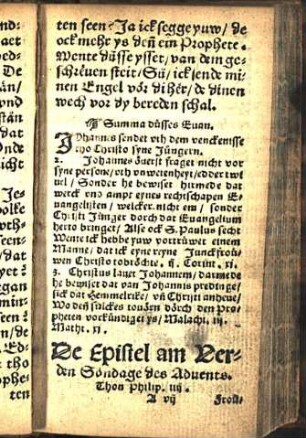 ten seen? Ja ick segge yuw / de
ock mehr ys deñ ein Prophete.
Wente düsse ysset / van dem ge-
schreuen steit / Sü / ick sende mi-
nen Engel vör di her / de dinen
wech vor dy bereden schal.
Summa düsses Euan.
Johannes sendet vth dem venckenisse
tho Christo syne Jüngern.
2. Johannes öuerst fraget nicht vor
syne persone / vth vnwetenheyt / edder twi
uel / Sonder he bewiset hirmede dat
werck vnd ampt eynes rechtschapen E-
uangelisten / welcker nicht em / sonder
Christi Jünger dorch dat Euangelium
herto bringet / Alse ock S. Paulus secht
Wente ick hebbe yuw vortrüwet einem
Manne / dat ick eyne reyne Junckfrou-
wen Christo tobröchte / ij. Corint. xj.
3. Christus lauet Johannem / darmede
he bewiset dat van Johannis predinge
sick dat Hemmelrike / vñ Christi anheue /
Wo deñ sülckes touörn dörch den Pro-
pheten vorkündiget ys / Malach. iij.
Matth. xj.
De Epistel am Ver-
den Söndage des Aduents.
Thon Philip. iiij.
A vij